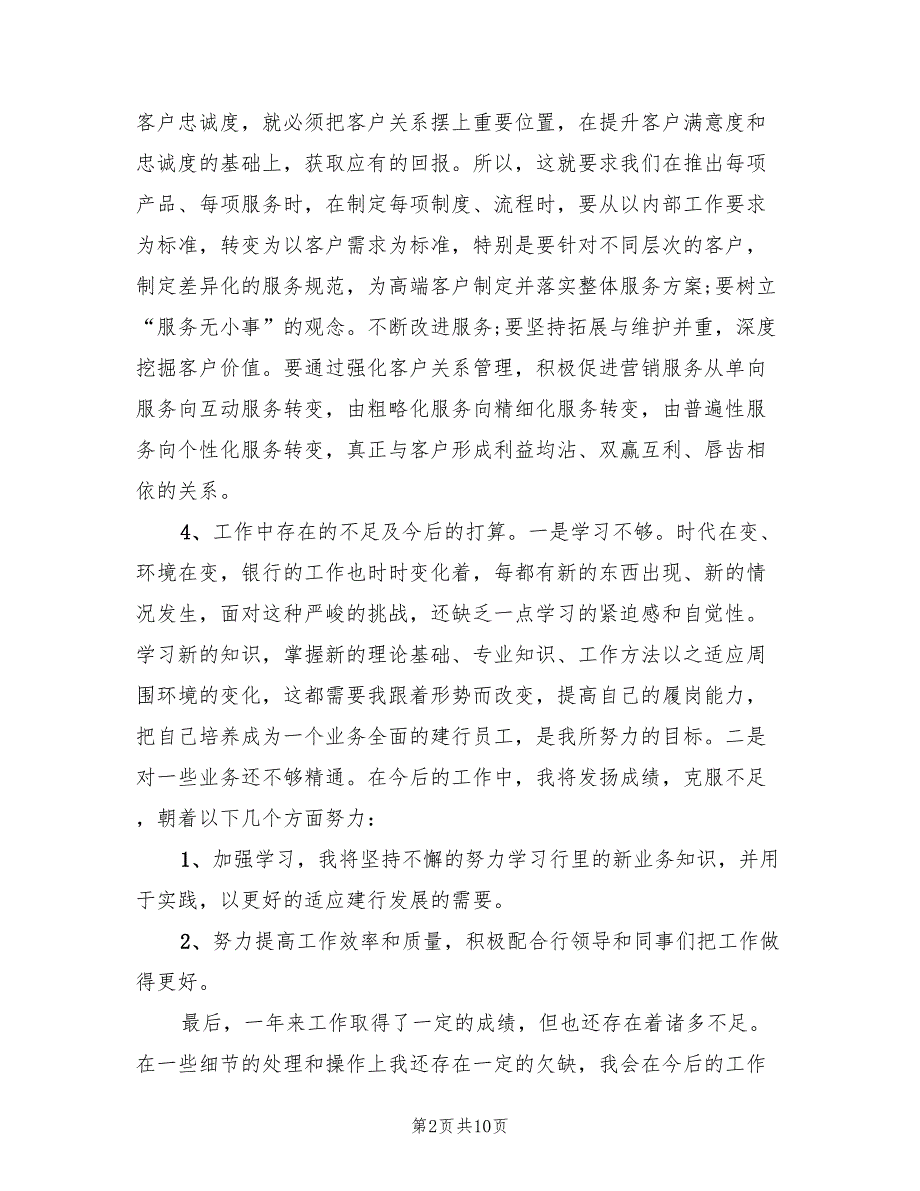 客户忠诚度，就必须把客户关系摆上重要位置，在提升客户满意度和
忠诚度的基础上，获取应有的回报。所以，这就要求我们在推出每项
产品、每项服务时，在制定每项制度、流程时，要从以内部工作要求
为标准，转变为以客户需求为标准，特别是要针对不同层次的客户，
制定差异化的服务规范，为高端客户制定并落实整体服务方案;要树立
“服务无小事”的观念。不断改进服务;要坚持拓展与维护并重，深度
挖掘客户价值。要通过强化客户关系管理，积极促进营销服务从单向
服务向互动服务转变，由粗略化服务向精细化服务转变，由普遍性服
务向个性化服务转变，真正与客户形成利益均沾、双赢互利、唇齿相
依的关系。
4、工作中存在的不足及今后的打算。一是学习不够。时代在变、
环境在变，银行的工作也时时变化着，每都有新的东西出现、新的情
况发生，面对这种严峻的挑战，还缺乏一点学习的紧迫感和自觉性。
学习新的知识，掌握新的理论基础、专业知识、工作方法以之适应周
围环境的变化，这都需要我跟着形势而改变，提高自己的履岗能力，
把自己培养成为一个业务全面的建行员工，是我所努力的目标。二是
对一些业务还不够精通。在今后的工作中，我将发扬成绩，克服不足
，朝着以下几个方面努力：
1、加强学习，我将坚持不懈的努力学习行里的新业务知识，并用
于实践，以更好的适应建行发展的需要。
2、努力提高工作效率和质量，积极配合行领导和同事们把工作做
得更好。
最后，一年来工作取得了一定的成绩，但也还存在着诸多不足。
在一些细节的处理和操作上我还存在一定的欠缺，我会在今后的工作
第2页共10页